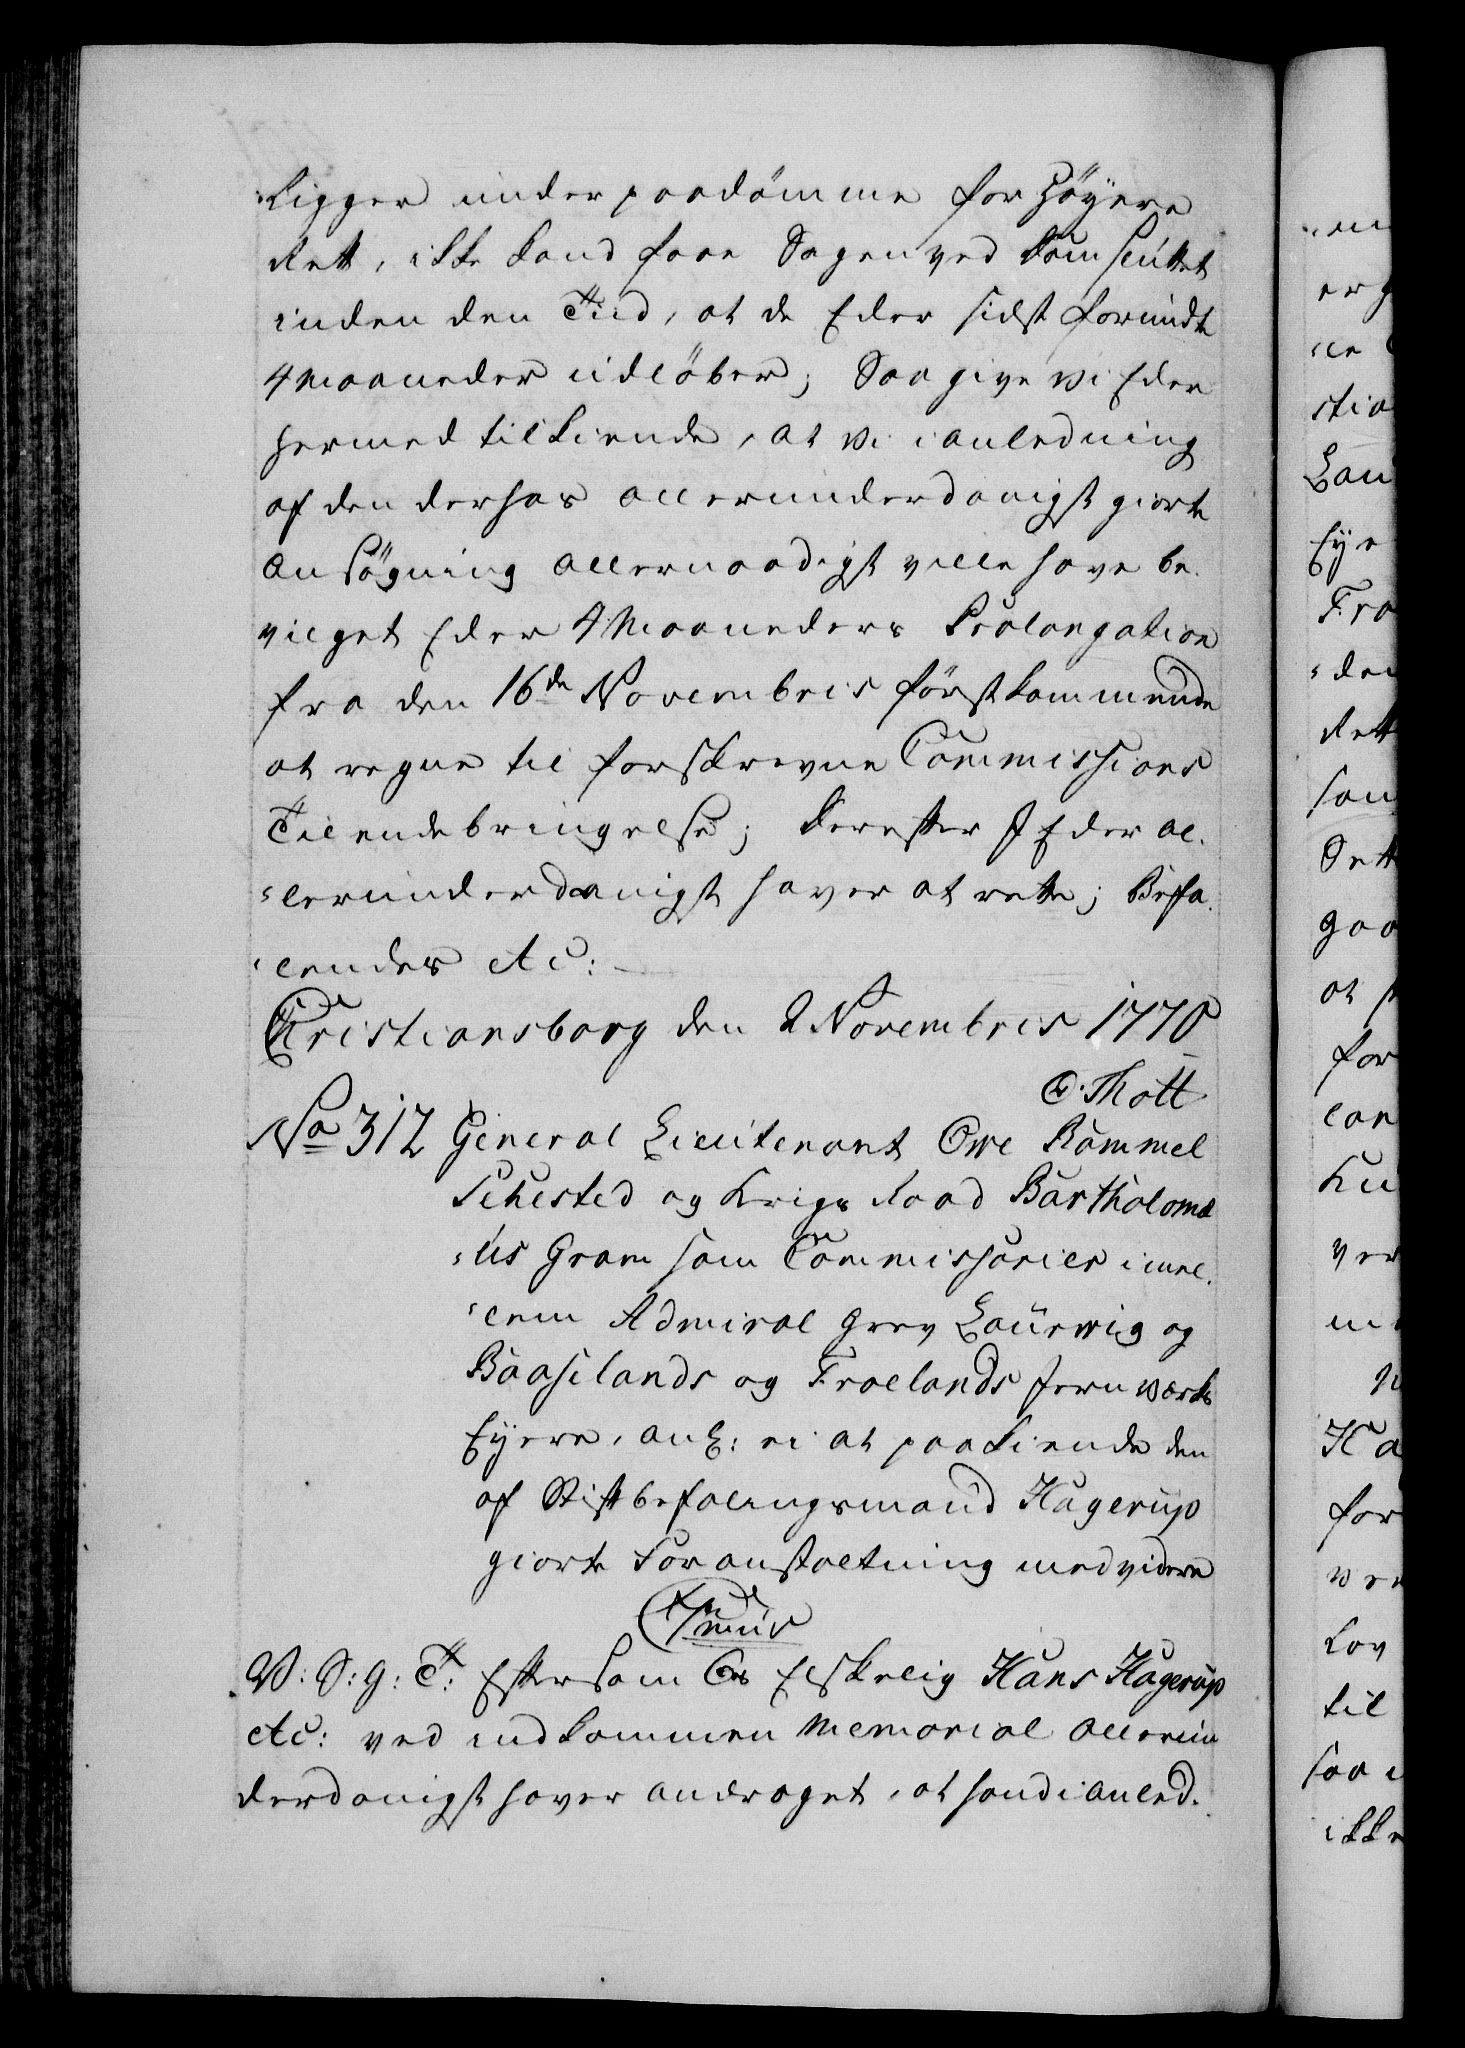 ligger under paadömme for Höyere
Rett, ikke kand faae Sagen ved Dom sluttet
inden den Tiid, at de Eder sidst forundte
4 Maaneder udlöber; Saa give vi Eder
hermed tilkiende, at vi i anledning
af den derhos allerunderdanigst giorte
ansögning allernaadigst ville have be-
vilget Eder 4 Maaneders Prolongation
fra den 16de Novembris förstkommende
at regne til forskrevne Commissions
Tilendebringelse; Derefter I Eder al-
lerunderdanigst haver at rette; Befa-
lendes etc:
Christiansborg den 2 Novembris 1770
O. Thott
No 312 General Lieutenant Owe Rammel
Sehested og Krigs Raad Bartholomæ
us Gram som Commissarier imel-
lem Admiral Grev Laurwig og
Baaselands og Froelands Jernværks
Eyere, anl: ei at paakiende den
af Stiftbefalingsmand Hagerup
giorte Foranstaltning med videre
V: S: G: T: Eftersom Os Elskelig Hans Hagerup
etc: ved indkommen Memorial allerun
derdanigst haver andraget, at hand i anled-